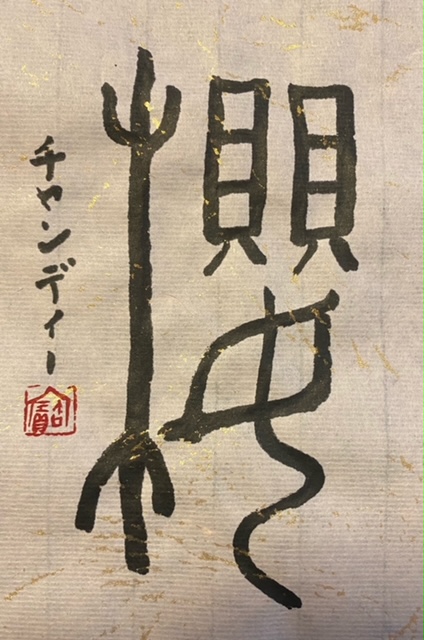 櫻
チャンディー